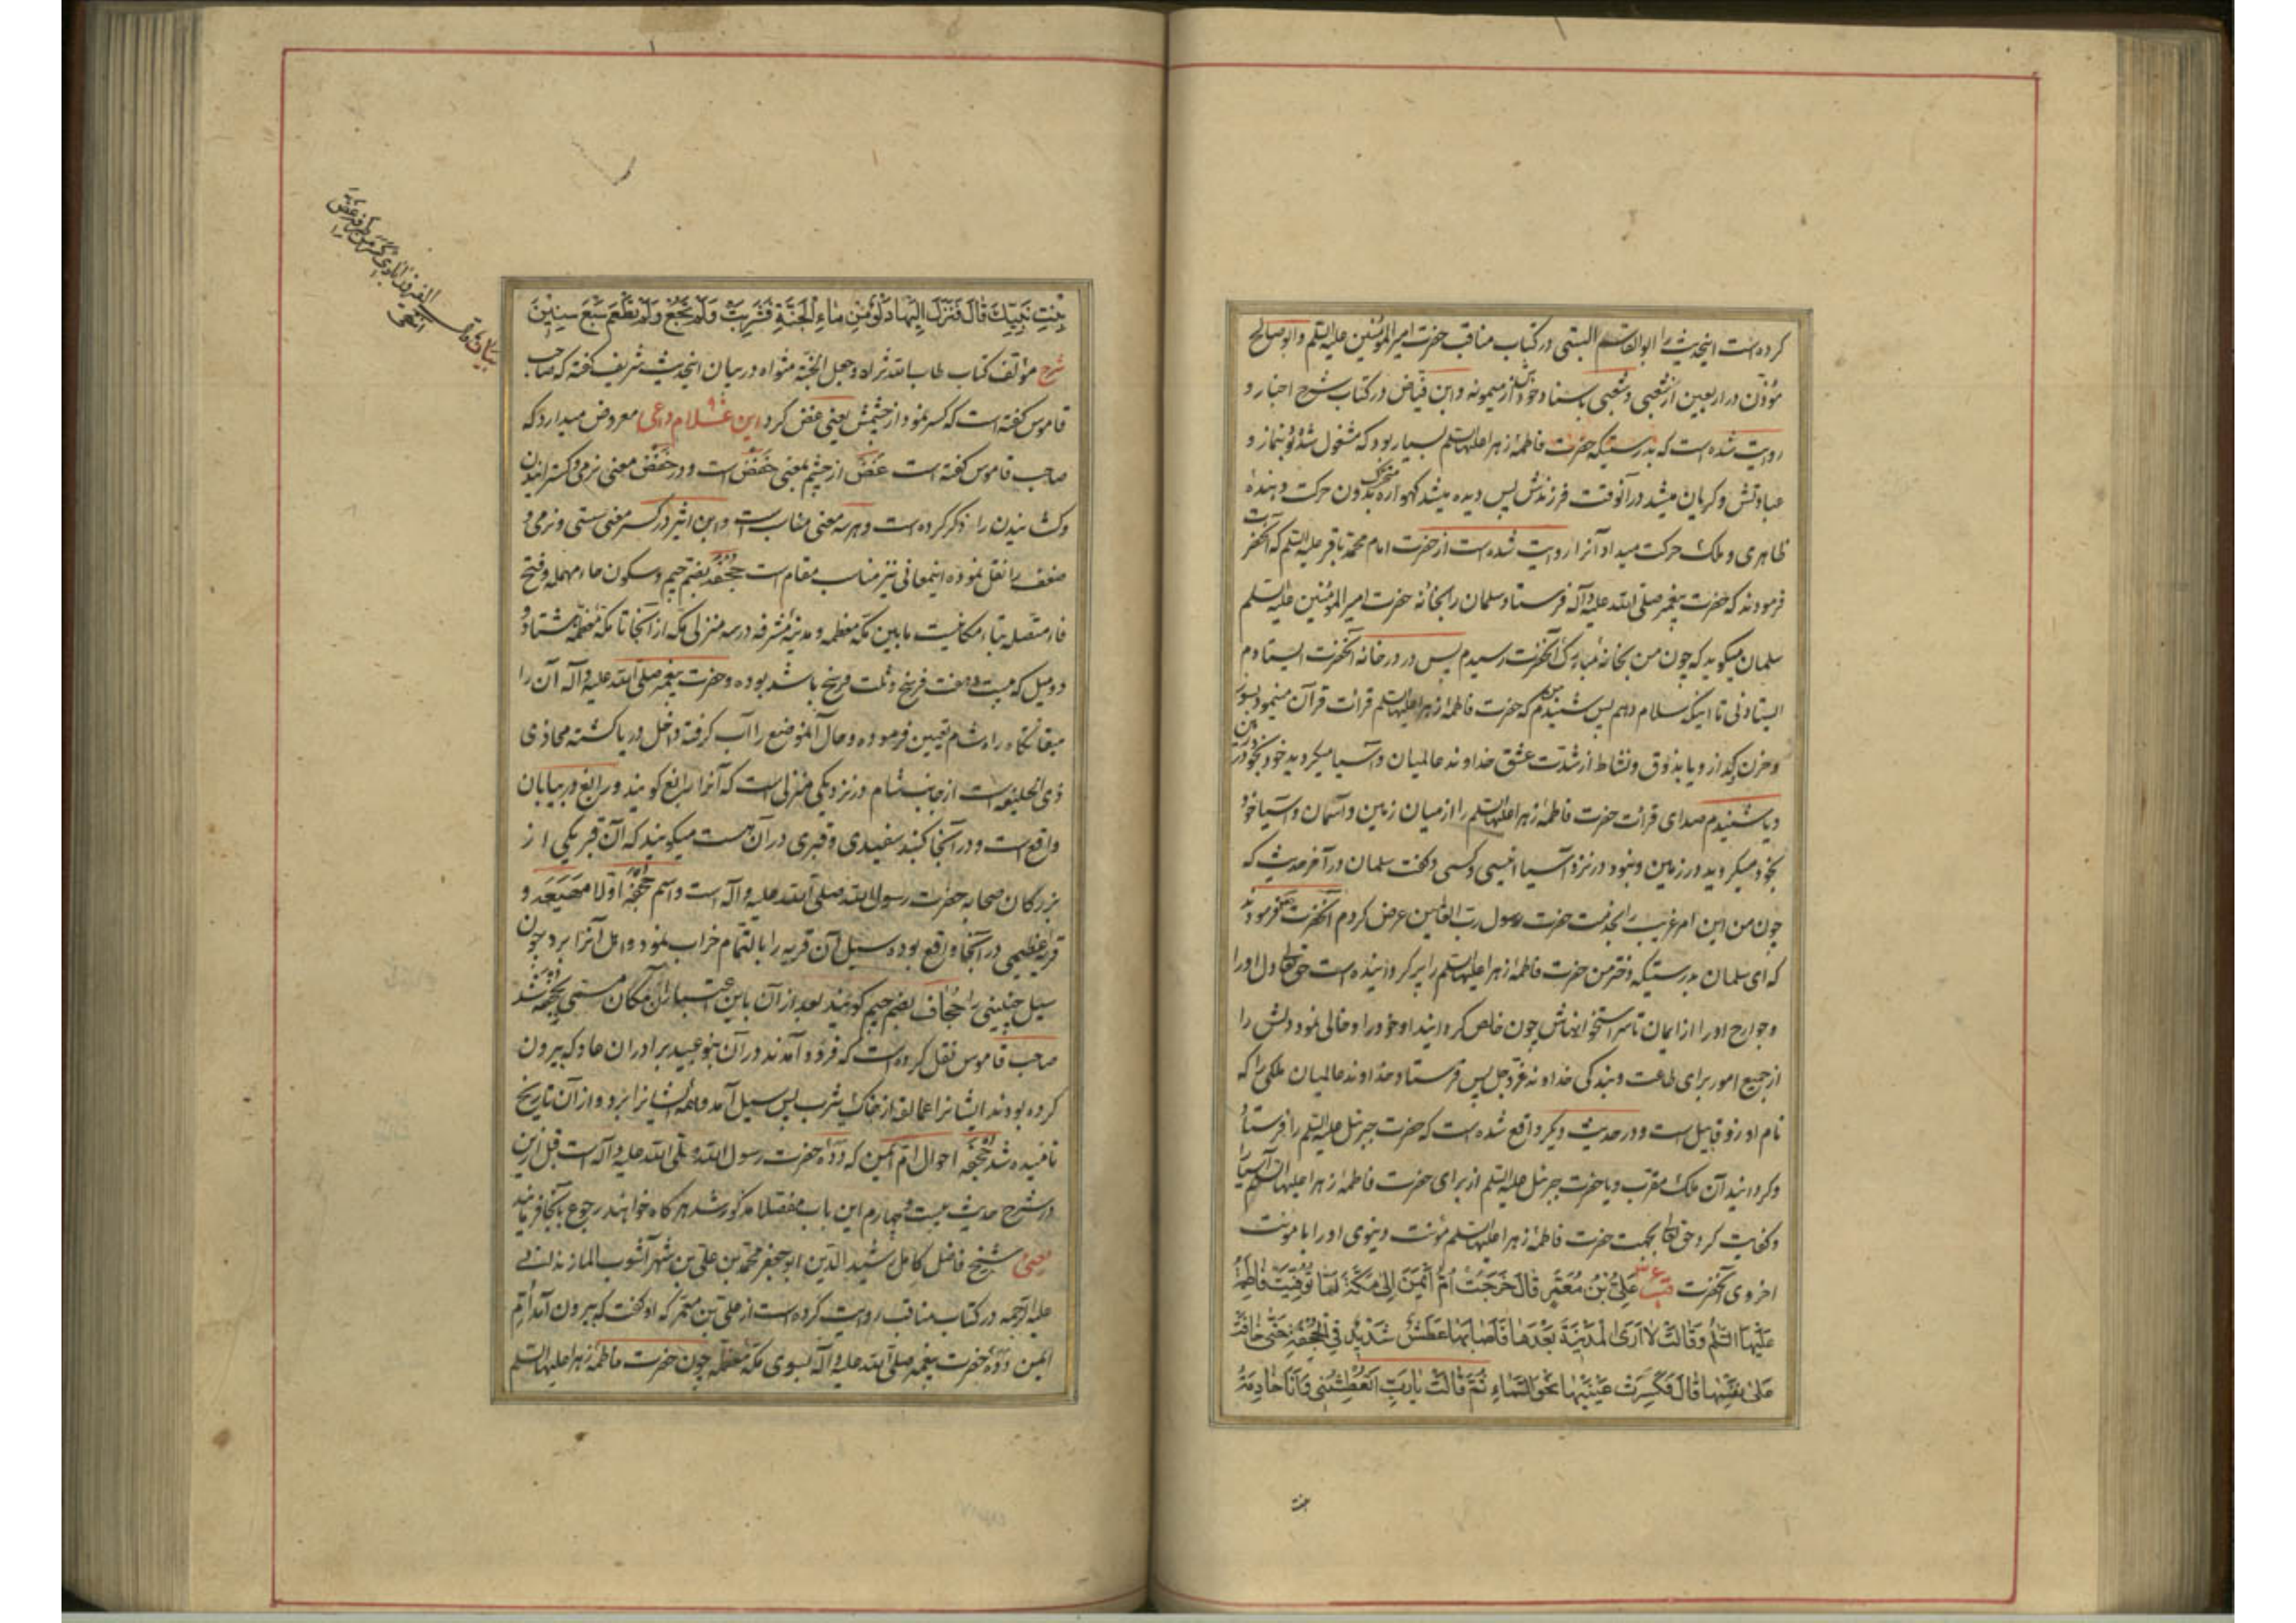 کرده است اینحدیث را ابو القاسم البستی در کتاب مناقب حضرت امیر المؤمنین علیه السلم و ابو صالح
مؤذن در اربعین از شعبی و شعبی باسناد خود از میمونه و ابن فیاض در کتاب شرح اخبار و
روایت شده است که بدرستیکه حضرت فاطمهٔ زهرا علیها السلم بسیار بود که مشغول شد بنماز و
عبادتش و گریان میشد در آنوقت فرزندش پس دیده میشد گهواره متحرک بدون حرکت دهندهٔ
ظاهری و ملک حرکت میداد آنرا روایت شده است از حضرت امام محمد باقر علیه السلم که آنحضرت
فرمودند که حضرت پیغمبر صلی الله علیه و آله فرستاد سلمان را بخانه حضرت امیر المؤمنین علیه السلم
سلمان میگوید که چون من بخانه مبارک آنحضرت رسیدم پس در در خانه آنحضرت ایستادم
ایستادنی تا اینکه سلام دهم پس شنیدم من که حضرت فاطمهٔ زهرا علیها السلم قرائت قرآن مینمود بسوز
و حزن گداز و یا بذوق و نشاط از شدت عشق خداوند عالمیان و آسیا میگردید خود بخود در
و یا شنیدم صدای قرائت حضرت فاطمهٔ زهرا علیها السلم را از میان زمین و آسمان و آسیا خود
بخود میگردید در زمین و نبود در نزد آسیا انیسی و کسی و گفت سلمان در آخر حدیث که
چون من این امر غریب را بخدمت حضرت رسول رب العالمین عرض کردم آنحضرت فرمودند
که ای سلمان بدرستیکه دختر من حضرت فاطمهٔ زهرا علیها السلم را پر گردانیده است حق تعالی دل او را
و جوارح او را از ایمان تا سر استخوانهاش چون خالص گردانید او خود را و خالی نمود دلش را
از جمیع امور برای طاعت و بندگی خداوند عز و جل پس فرستاد خداوند عالمیان ملکی را که
نام او زوقابیل است و در حدیث دیگر واقع شده است که حضرت جبرئیل علیه السلم را فرستاد
و گردانید آن ملک مقرب و یا حضرت جبرئیل علیه السلم از برای حضرت فاطمهٔ زهرا علیها السلم آسیا را
و کفایت کرد حق تعالی بجهت حضرت فاطمهٔ زهرا علیها السلم مؤنت دنیوی او را با مؤنت
اخروی آنحضرت قب عَلِیُّ بْنُ مُعَمَّرٍ قَالَ خَرَجَتْ اُمُّ اَیْمَنَ اِلیٰ مَکَّةَ لَمَّا تُوُفِّیَتْ فَاطِمَةُ
عَلَیْهَا السَّلٰمُ وَ قَالَتْ لَا اَرَی الْمَدِینَةَ بَعْدَهَا فَاَصَابَهَا عَطَشٌ شَدِیدٌ فِی الْجُحْفَةِ حَتّیٰ خَافَتْ
عَلیٰ نَفْسِهَا قَالَ فَکَسَرَتْ عَیْنَیْهَا نَحْوَ السَّمَاءِ ثُمَّ قَالَتْ یَا رَبِّ اَتُعَطِّشُنِی وَ اَنَا خَادِمَةُ
بنت
بِنْتِ نَبِیِّکَ قَالَ فَنَزَلَ اِلَیْهَا دَلْوٌ مِنْ مَاءِ الْجَنَّةِ فَشَرِبَتْ وَ لَمْ تَجُعْ وَ لَمْ تَطْعَمْ سَبْعَ سِنِینَ
شرح مؤلف کتاب طاب الله ثراه و جعل الجنة مثواه در بیان اینحدیث شریف گفته که صاحب
قاموس گفته است که کسر نمود از چشمش یعنی غض کرد این غلام داعی معروض میدارد که
صاحب قاموس گفته است غَضّ از چشم بمعنی خَفْض است و در خَفْض معنی نرمی و گسترانیدن
و کشانیدن را ذکر کرده است و هر سه معنی مناسب است و ابن اثیر در کسر معنی سستی و نرمی و
ضعف را نقل نموده اینمعانی نیز مناسب مقام است جُحْفَه بضم جیم و سکون حاء مهمله و فتح
فاء متصله بتاء مکانیست ما بین مکه معظمه و مدینه مشرفه در سه منزلی مکه از آنجا تا مکه معظمه هشتاد و
دو میل که بیست و هفت فرسخ و ثلث فرسخ باشد بوده و حضرت پیغمبر صلی الله علیه و آله آن را
میقاتگاه راه شام تعیین فرموده و حال آنموضع را آب گرفته و داخل دریا گشته محاذی
ذی الحلیفه است از جانب شام و نزدیکی منزلی است که آنرا رابغ گویند و رابغ در بیابان
واقع است و در آنجا گنبد سفیدی و قبری در آن هست میگویند که آن قبر یکی از
بزرگان صحابه حضرت رسول الله صلی الله علیه و آله است و اسم جحفه اولا مَهْیَعَه و
قریهٔ عظیمی در آنجا واقع بوده سیل آن قریه را بالتمام خراب نمود و اهل آنرا برد چون
سیل چنینی را جُحاف بضم جیم گویند بعد از آن باین اعتبار آن مکان مسمی بجحفه شد
صاحب قاموس نقل کرده است که فرود آمدند در آن بنو عبید برادران عاد که بیرون
کرده بودند ایشانرا عمالقه از خاک یثرب پس سیل آمد و همه ایشانرا برد و از آن تاریخ
نامیده شد جُحْفَه احوال ام ایمن که دَدَهٔ حضرت رسول الله صلی الله علیه و آله است قبل از این
در شرح حدیث بیست و چهارم این باب مفصلا مذکور شد هر گاه خواهند رجوع بآنجا فرمایند
یعنی شیخ فاضل کامل رشید الدین ابو جعفر محمد بن علی بن شهر آشوب المازندرانی
علیه الرحمه در کتاب مناقب روایت کرده است از علی بن معمر که او گفت که بیرون آمد ام
ایمن دَدَهٔ حضرت پیغمبر صلی الله علیه و آله بسوی مکه معظمه چون حضرت فاطمهٔ زهرا علیها السلم
بیان
الفیروزآبادی کسر من طرفه غض
انتهی